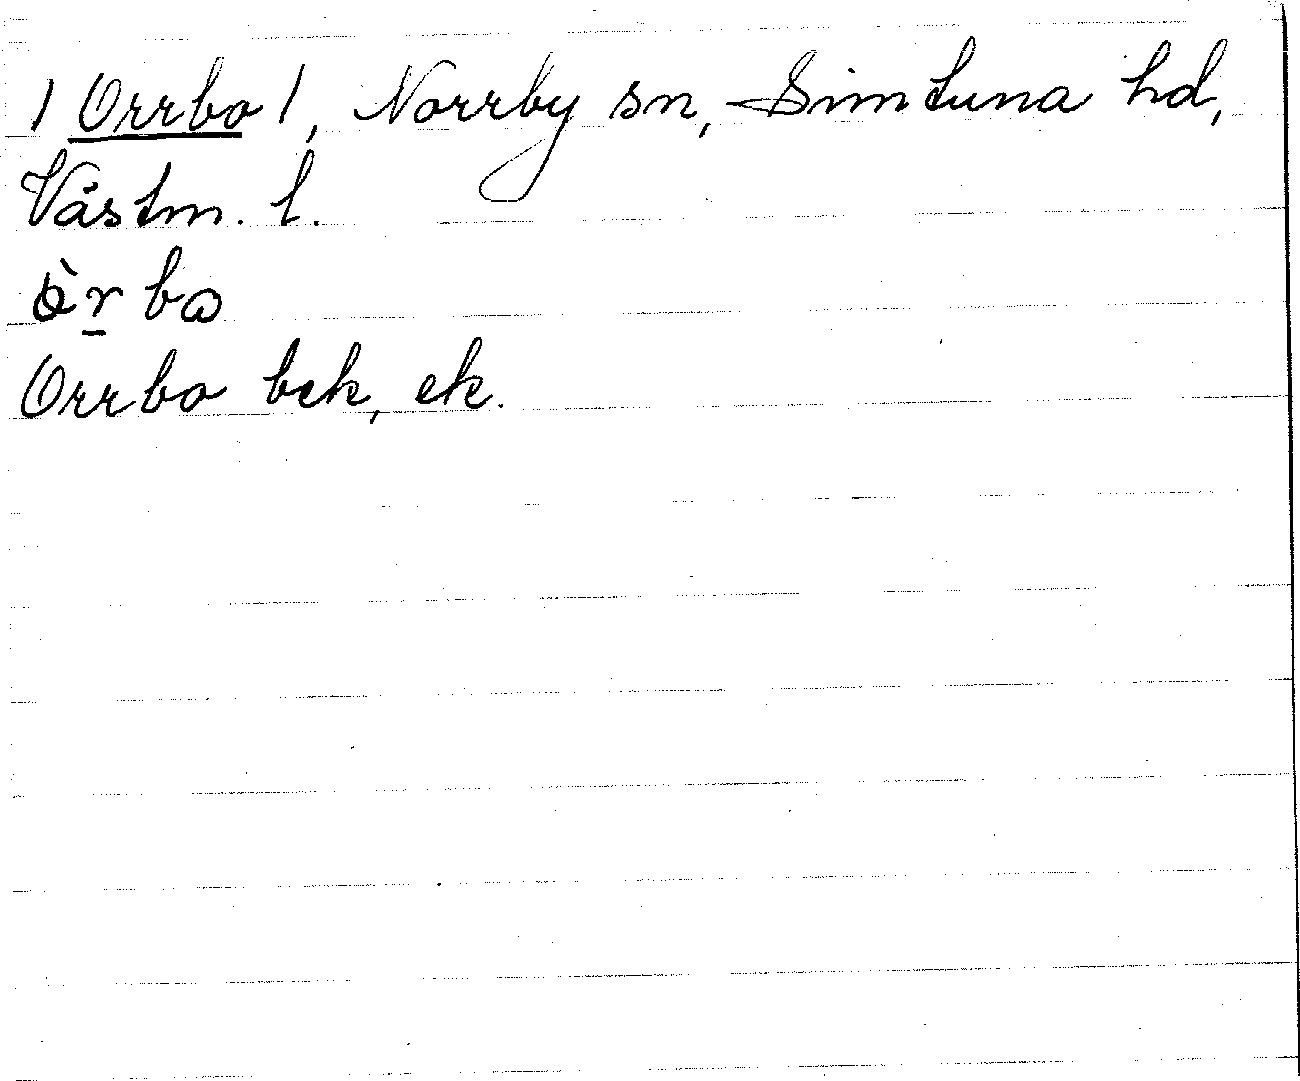 / Orrbo /, Norrby sn, Simtuna hd,
Västm. l.
òr̲bɷ
Orrbo bek, ek.